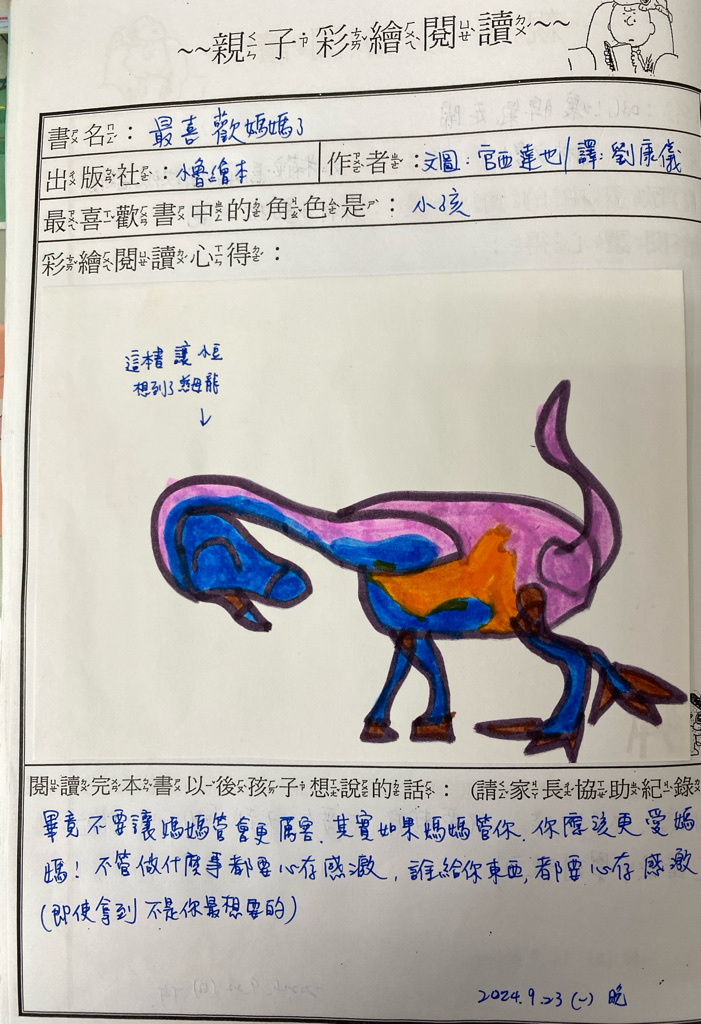 ~~親子彩繪閱讀~~
書名：最喜歡媽媽了
出版社：小魯繪本 作者：文圖：宮西達也/譯：劉康儀
最喜歡書中的角色是：小孩
彩繪閱讀心得：
這本書 讓 小豆
想到了慈母龍
↓
閱讀完本書以後孩子想說的話：(請家長協助紀錄
畢竟不要讓媽媽管會更厲害.其實如果媽媽管你.你應該更愛媽
媽！不管做什麼事都要心存感激，誰給你東西，都要心存感激
(即使拿到不是你最想要的)
2024.9.23(一) 晚